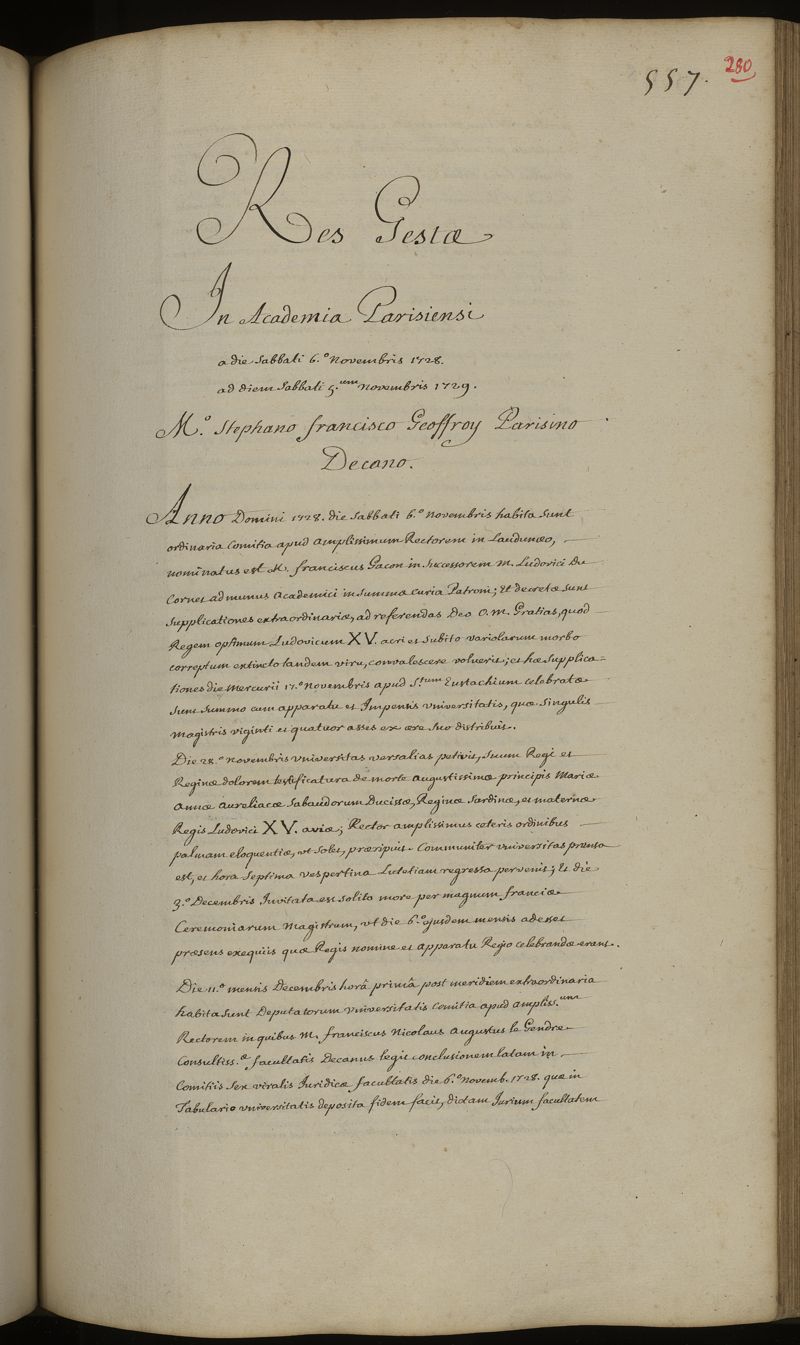 557. 280
Res Gestæ
In Academia Parisiensi
a die Sabbati 6.º Novembris 1728.
ad diem Sabbati 5.um Novembris 1729.
M.º Stephano francisco Geoffroy Parisino
Decano.
Anno Domini 1728. die Sabbati 6.º Novembris habita sunt
ordinaria Comitia apud Amplissimum Rectorem in Laudunæo,
nominatus est M. franciscus Gacon in Successorem M. Ludovici Du
Cornet ad munus Academici in Summa Curia Patroni; Et decretæ sunt
Supplicationes extraordinariæ, ad referendas Deo O. M. Gratias, quod
Regem optimum Ludovicum XV. acri et Subito variolarum morbo
correptum extincto tandem viru, convalescere voluerit; et hæ Supplica=
tiones die Mercurii 17.º Novembris apud S.tum Eustachium celebratæ
sunt Summo cum apparatu et Impensis Universitatis, quæ Singulis
Magistris viginti et quatuor asses ex ære Suo distribuit.
Die 28.º Novembris Universitas versalias petivit, Suum Regi et
Reginæ dolorem testificatura de morte augustissimæ principis Mariæ
Annæ Aureliacæ Sabaudorum Ducissæ, Reginæ Sardinæ, et maternæ
Regis Ludovici XV. aviæ; Rector amplissimus ceteris ordinibus
palmam eloquentiæ, ut Solet, præripuit. Communiter Universitas pransa
est, et hora Septima vespertina Lutetiam regressa pervenit; Et die
3.º Decembris Invitata est Solito more per magnum franciæ
Ceremoniarum Magistrum, ut die 6.º ejusdem mensis adesset
præsens exequiis quæ Regis nomine et apparatu Regio celebrandæ erant.
Die 11.º mensis Decembris horâ primâ post meridiem extraordinaria
habita sunt Deputatorum Universitatis Comitia apud Ampliss.um
Rectorem in quibus M. franciscus Nicolaus Augustus le Gendre
Consultiss.æ facultatis Decanus legit conclusionem latam in
Comitiis Sex viralis Juridicæ facultatis die 6.º Novemb. 1728. quæ in
Tabulario Universitatis deposita fidem facit, dictam Jurium facultatem